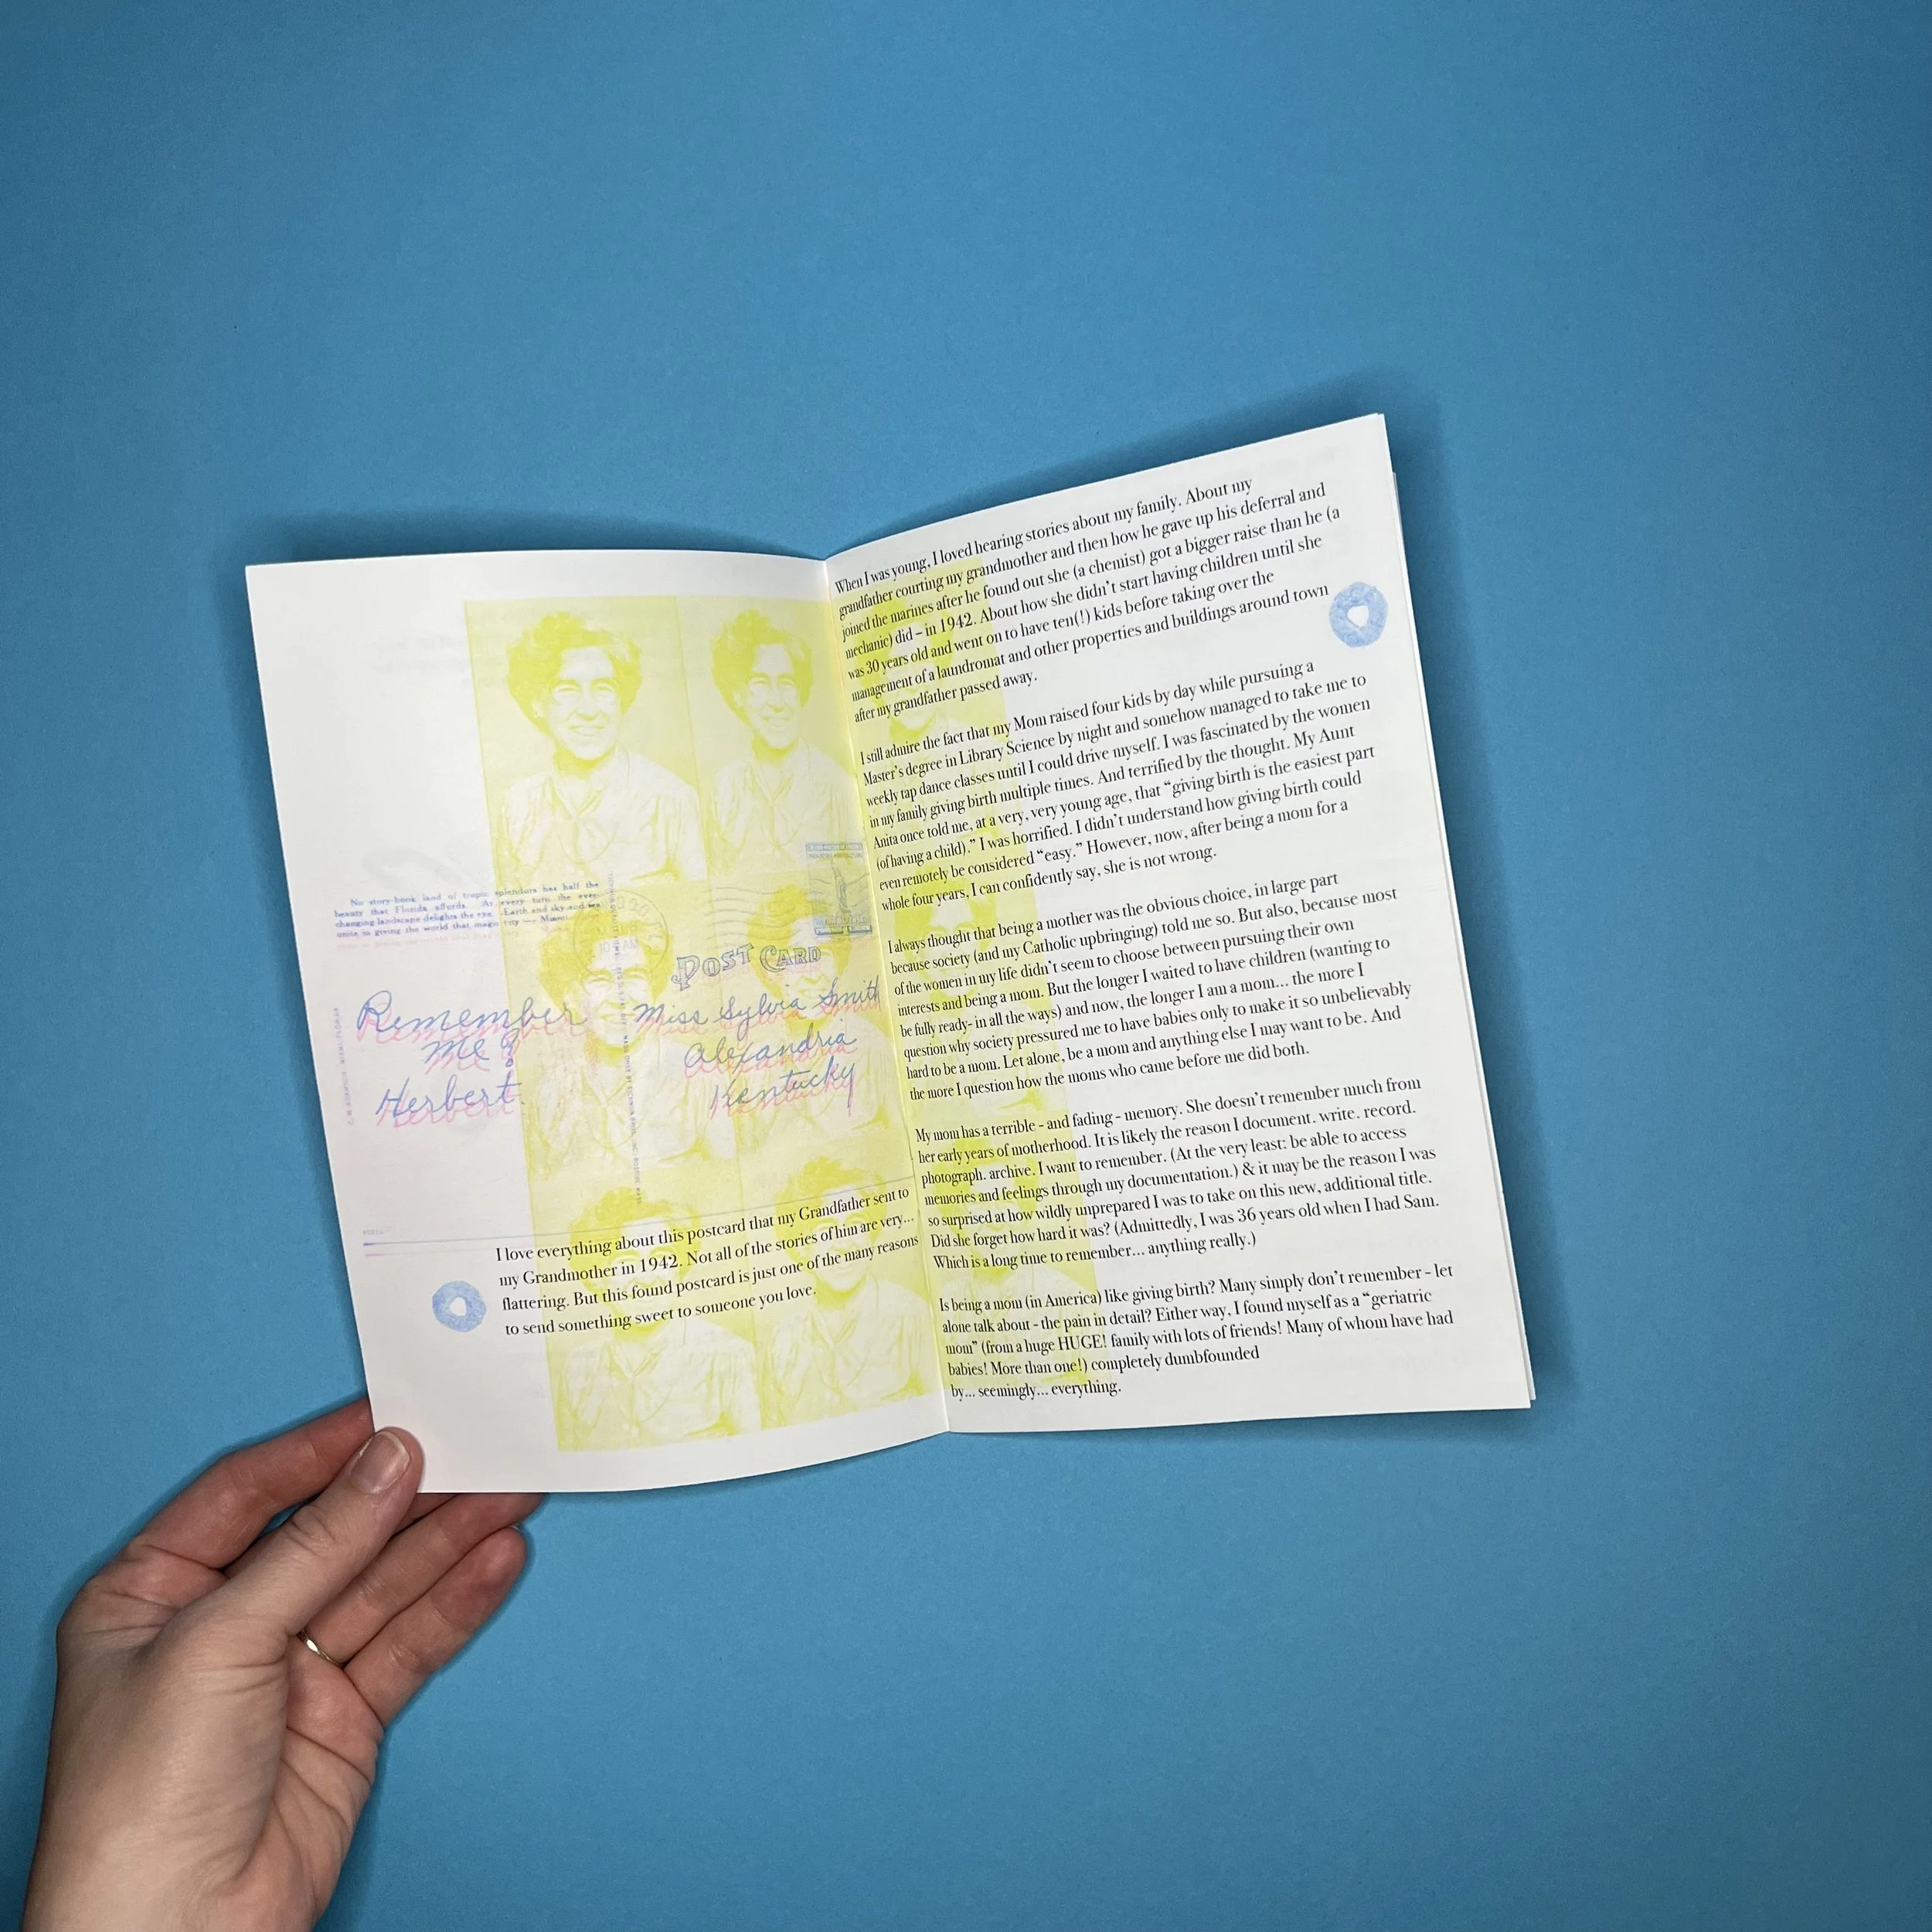 No story-book land of tropic splendors has half the
beauty that Florida affords. As every turn the ever-
changing landscape delights the eye. Earth and sky and sea
unite in giving the world that magic city — Miami.
POST CARD
Remember
me?
Herbert.
Miss Sylvia Smith
Alexandria
Kentucky
I love everything about this postcard that my Grandfather sent to
my Grandmother in 1942. Not all of the stories of him are very...
flattering. But this found postcard is just one of the many reasons
to send something sweet to someone you love.
When I was young, I loved hearing stories about my family. About my
grandfather courting my grandmother and then how he gave up his deferral and
joined the marines after he found out she (a chemist) got a bigger raise than he (a
mechanic) did – in 1942. About how she didn't start having children until she
was 30 years old and went on to have ten(!) kids before taking over the
management of a laundromat and other properties and buildings around town
after my grandfather passed away.
I still admire the fact that my Mom raised four kids by day while pursuing a
Master's degree in Library Science by night and somehow managed to take me to
weekly tap dance classes until I could drive myself. I was fascinated by the women
in my family giving birth multiple times. And terrified by the thought. My Aunt
Anita once told me, at a very, very young age, that “giving birth is the easiest part
(of having a child).” I was horrified. I didn't understand how giving birth could
even remotely be considered “easy.” However, now, after being a mom for a
whole four years, I can confidently say, she is not wrong.
I always thought that being a mother was the obvious choice, in large part
because society (and my Catholic upbringing) told me so. But also, because most
of the women in my life didn't seem to choose between pursuing their own
interests and being a mom. But the longer I waited to have children (wanting to
be fully ready- in all the ways) and now, the longer I am a mom... the more I
question why society pressured me to have babies only to make it so unbelievably
hard to be a mom. Let alone, be a mom and anything else I may want to be. And
the more I question how the moms who came before me did both.
My mom has a terrible - and fading - memory. She doesn't remember much from
her early years of motherhood. It is likely the reason I document. write. record.
photograph. archive. I want to remember. (At the very least: be able to access
memories and feelings through my documentation.) & it may be the reason I was
so surprised at how wildly unprepared I was to take on this new, additional title.
Did she forget how hard it was? (Admittedly, I was 36 years old when I had Sam.
Which is a long time to remember... anything really.)
Is being a mom (in America) like giving birth? Many simply don't remember - let
alone talk about - the pain in detail? Either way, I found myself as a “geriatric
mom” (from a huge HUGE! family with lots of friends! Many of whom have had
babies! More than one!) completely dumbfounded
by... seemingly... everything.